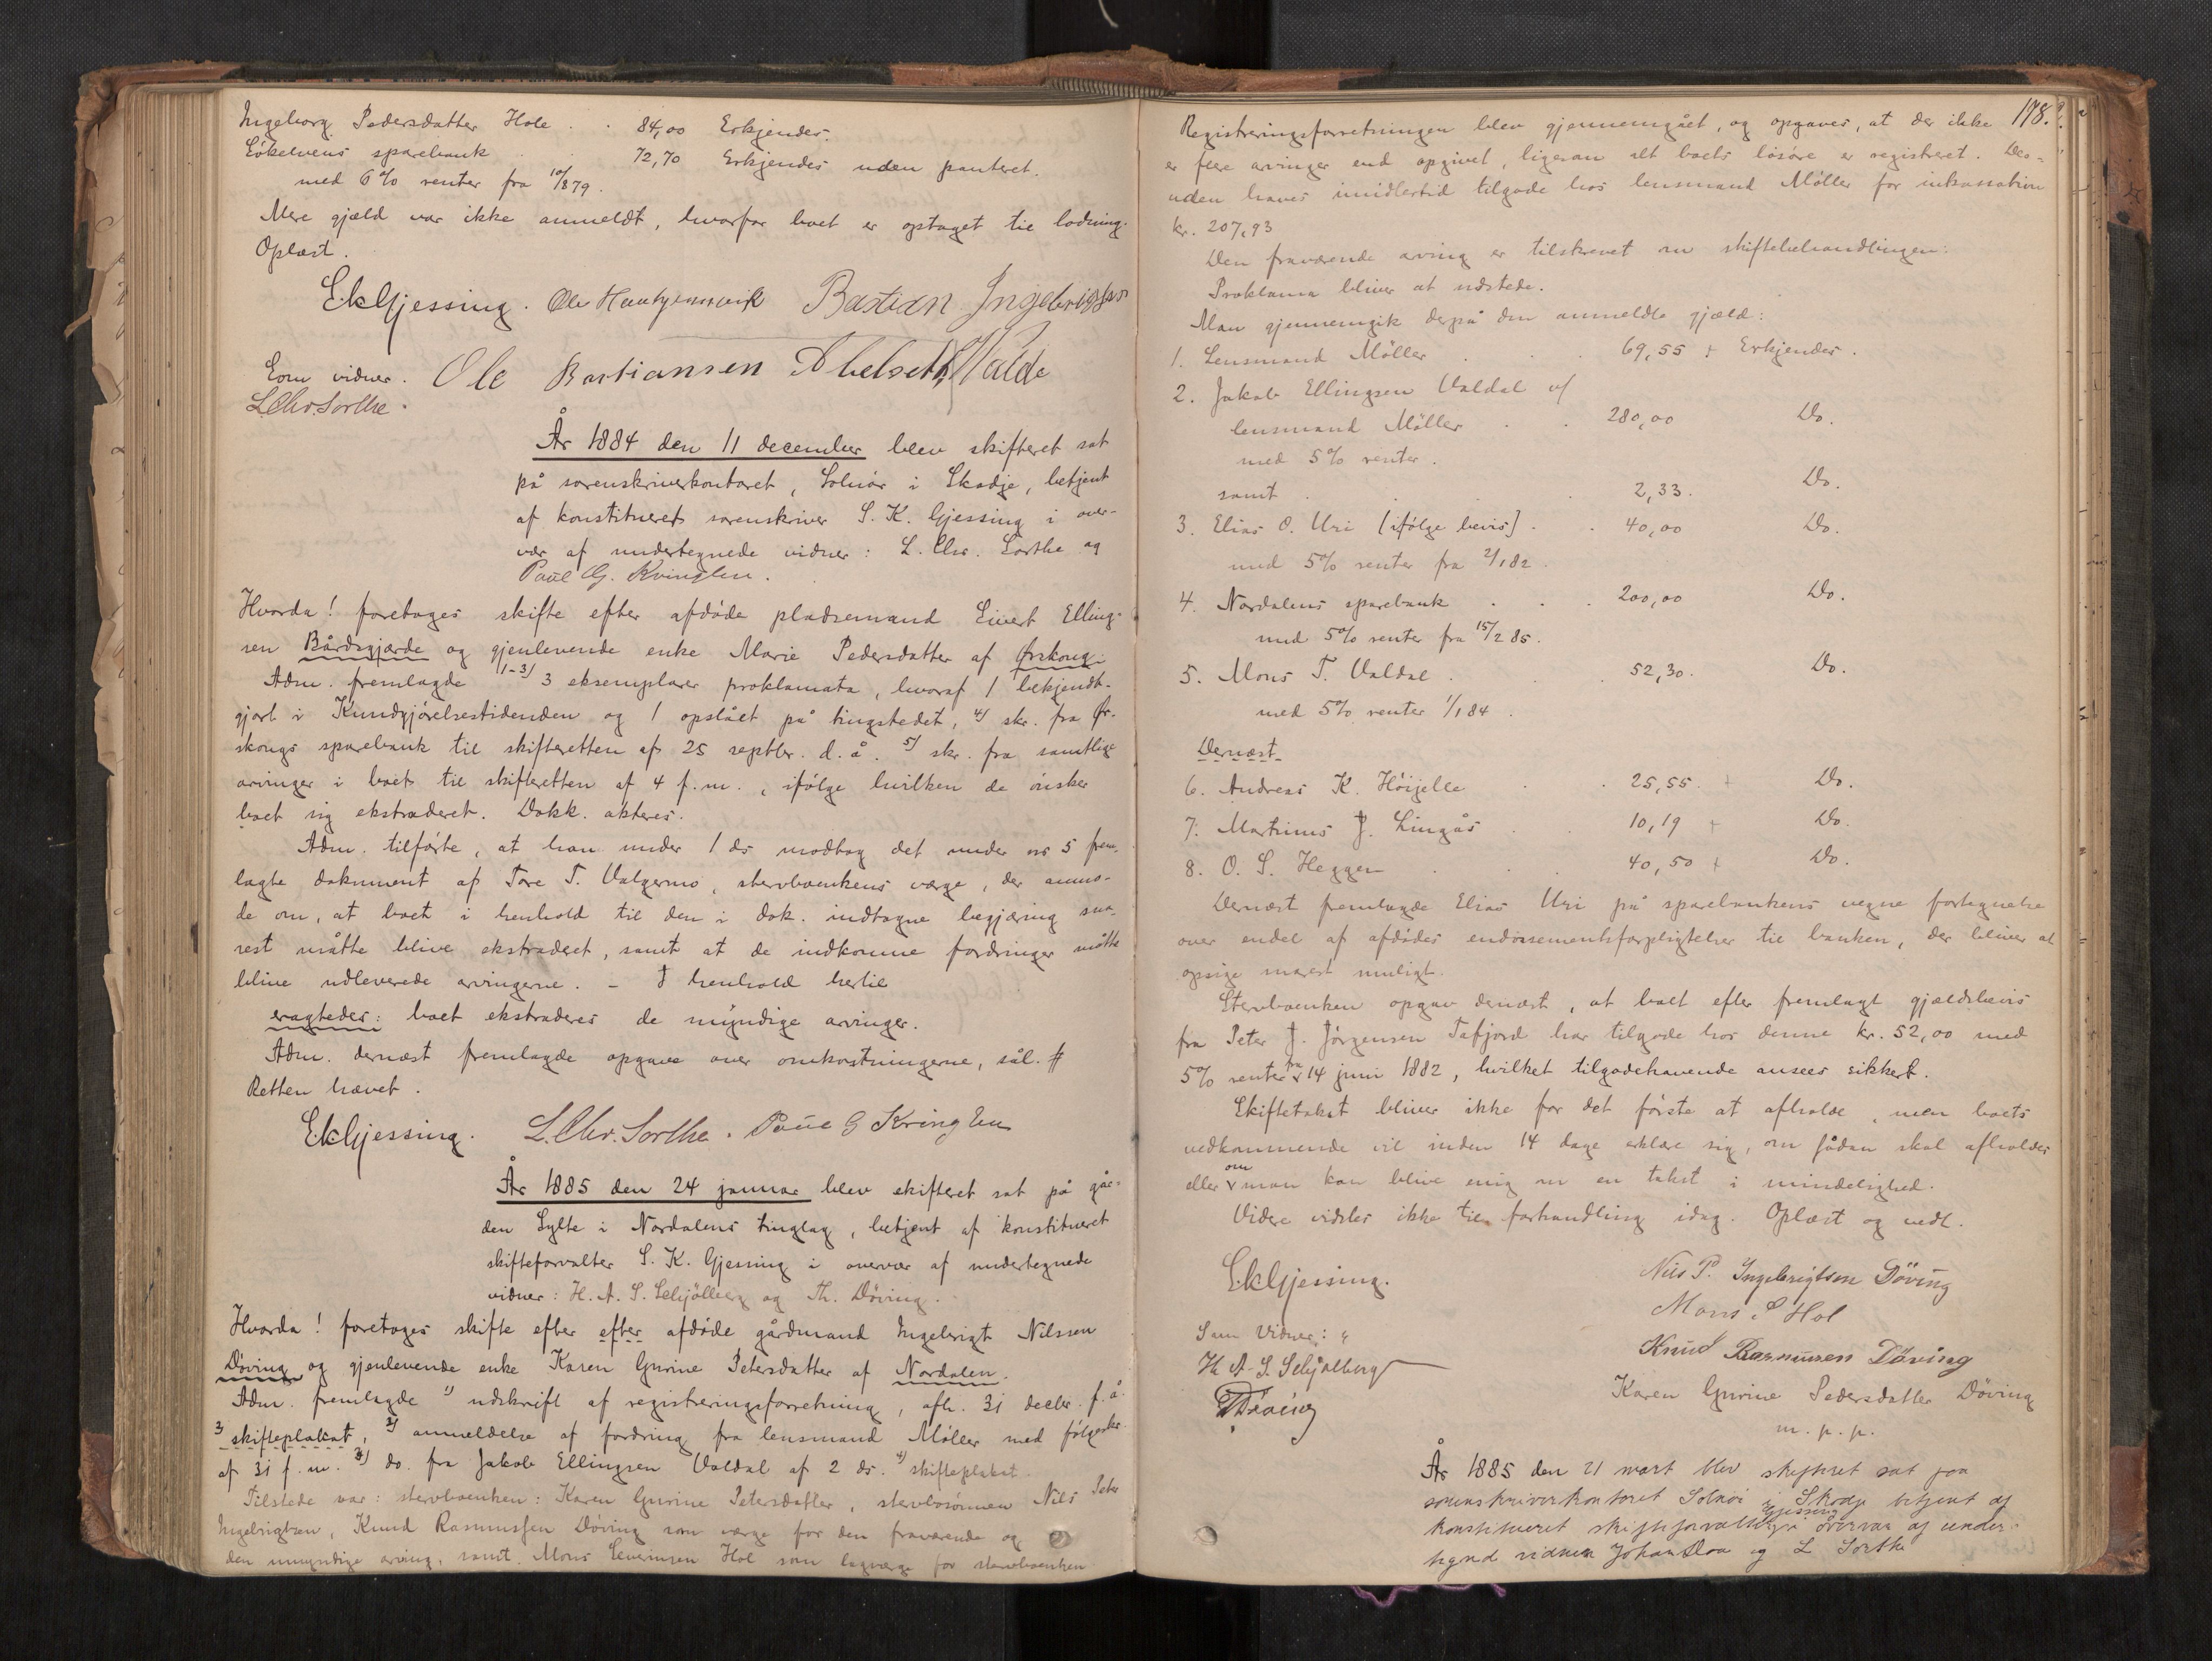 Ingeborg Pedersdatter Hole . . 84,00 Erkjendes.
Sökelvens sparebank . . 72,70 Erkjendes uden panteret.
med 6% renter fra 10/8 79.
Mere gjæld var ikke anmeldt, hvorfor boet er optaget til lodning.
Oplæst.
EkGjessing. Ole Bastian Ingebrigtsen
Som vidner. Ole Bastiansen Abelseth Walde
L.Chr.Sorthe.
År 1884 den 11 december blev skifteret sat
på sorenskriverkontoret, Solnör i Skodje, betjent
af konstitueret sorenskriver S. K. Gjessing i over-
vær af undertegnede vidner: L. Chr. Sorthe og
Paul G. Kringlen.
Hvorda! foretoges skifte efter afdöde pladsemand Sivert Elling-
sen Bårdsgjærde og gjenlevende enke Marie Pedersdatter af Ørskoug.
Adm. fremlagde 1-3) 3 eksemplarer proklamata, hvoraf 1 bekjendt-
gjort i Kundgjörelsestidenden og 1 opslået på tingstedet, 4) skr. fra Ør-
skougs sparebank til skifteretten af 25 septbr. d. å. 5) skr. fra samtlige
arvinger i boet til skifteretten af 4 f.m., ifölge hvilken de önsker
boet sig ekstraderet. Dokk. akteres.
Adm. tilförte, at han under 1 ds modtog det under no 5 frem-
lagte dokument af Tore T. Valgermo, stervboenkens værge, der anmo-
de om, at boet i henhold til den i dok. indtagne begjæring sna-
rest måtte blive ekstraderet, samt at de indkomne fordringer måtte
blive udleverede arvingerne. - I henhold hertil
eragtedes: boet ekstraderes de myndige arvinger.
Adm. dernæst fremlagde opgave over omkostningerne, sål. #
Retten hævet.
EkGjessing. L.Chr.Sorthe. Paul G Kringlen
År 1885 den 24 januar blev skifteret sat på går-
den Sylte i Nordalens tinglag, betjent af konstitueret
skifteforvalter S. K. Gjessing i overvær af undertegnede
vidner: H. A. S. Schjölberg og Th. Döving.
Hvorda! foretoges skifte efter efter afdöde gårdmand Ingebrigt Nilssen
Döving og gjenlevende enke Karen Gurine Petersdatter af Nordalen.
Adm. fremlagde 1) udskrift af registreringsforretning, afh. 31 decbr. f. å.
3) skifteplakat, 2) anmeldelse af fordring fra lensmand Möller med fölgeskr.
af 31 f.m. 3) do. fra Jakob Ellingsen Valdal af 2 ds. 4) skifteplakat.
Tilstede var: stervboenken: Karen Gurine Petersdatter, stervbosönnen Nils Peter
Ingebrigtsen, Knud Rasmussen Döving som værge for den fraværende og
den umyndige arving, samt Mons Severinsen Hol som lagværge for stervboenken
178.
Registreringsforretningen blev gjennemgået, og opgaves, at der ikke
er flere arvinger end opgivet, ligesom alt boets lösöre er registreret. Des-
uden haves imidlertid tilgode hos lensmand Möller for inkassation
kr. 207,93
Den fraværende arving er tilskrevet om skiftebehandlingen.
Proklama bliver at udstede.
Man gjennemgik derpå den anmeldte gjæld:
1. Lensmand Möller . . 69,55 + Erkjendes.
2. Jakob Ellingsen Valdal v/
lensmand Möller . . 280,00 Do.
med 5% renter.
samt . . 2,33. Do.
3. Elias O. Uri (ifölge bevis) . . 40,00 Do.
med 5% renter fra 2/1 82.
4. Nordalens sparebank . . 200,00 Do.
med 5% renter fra 15/2 85.
5. Mons T. Valdal . . 52,30. Do.
med 5% renter 1/1 84.
Dernæst
6. Andreas K. Höijelle . . 25,55. + Do.
7. Martinus J. Lingås . . 10,19 + Do.
8. O. S. Heggen . . 40,50 + Do.
Dernæst fremlagde Elias Uri på sparebankens vegne fortegnelse
over endel af afdödes endossementsforpligtelser til banken, der bliver at
opsige snarest muligt.
Stervboenken opgav dernæst, at boet efter fremlagt gjældsbevis
fra Peter J. Jörgensen Tafjord har tilgode hos denne kr. 52,00 med
5% renter fra 14 juni 1882, hvilket tilgodehavende ansees sikkert.
Skiftetakst bliver ikke for det förste at afholde, men boets
vedkommende vil inden 14 dage erklære sig, om sådan skal afholdes
eller om man kan blive enig om en takst i mindelighed.
Videre vidstes ikke til forhandling idag. Oplæst og vedt.
EkGjessing.
Nils P. Ingebrigtsen Döving
Mons S Hol
Knud Rasmussen Döving
Karen Gurine Pedersdatter Döving
m. p. p.
Som Vidner:
H. A. S. Schjølberg
ThDöving
År 1885 den 21 mart blev skifteret sat paa
sorenskriverkontoret Solnør i Skodje betjent af
konstitueret skifteforvalter Gjessing i overvær af under-
tegned vidner Johan Sloa og L Sorthe